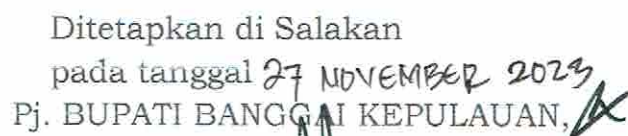 Ditetapkan di Salakan
pada tanggal 27 NOVEMBER 2023
Pj. BUPATI BANGGAI KEPULAUAN,